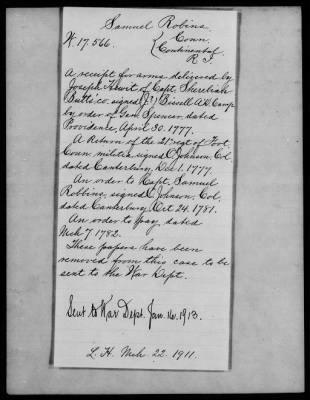 Samuel Robins.
W. 17.566. Conn.
Continental
R. I.
A receipt for arms delivered by
Joseph Hewit of Capt. Sherebiah
Butts co. signed Bissell A.D. Camp
by order of Gen. Spencer, dated
Providence, April 30. 1777.
A Return of the 21st regt of Foot
Conn. militia, signed Johnson, Col.
dated Canterbury, Dec 1. 1777.
An order to Capt. Samuel
Robbins, signed Johnson, Col.
dated Canterbury, Oct 24, 1781.
An order to pay dated
Mch 7. 1782.
These papers have been
removed from this case to be
sent to the War Dept.
Sent to War Dept. Jan. 16. 1913.
L. H. Mch. 22. 1911.